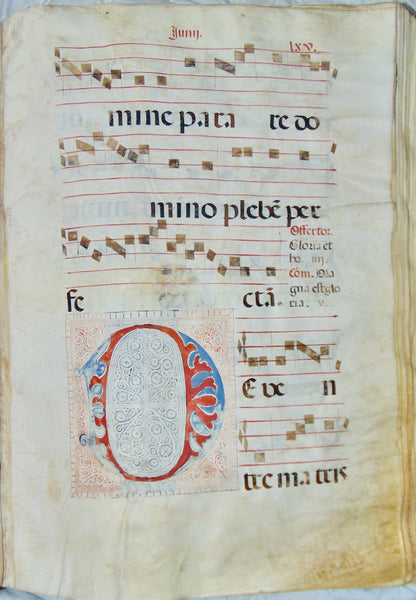 Junij. lxv.
mine para re do
mino plebẽ per
Offertor.
Gloria et
ho iiij.
Cõm. Ma
gna est glo
ria v.
fe ctã.
D E ve n
tre matris